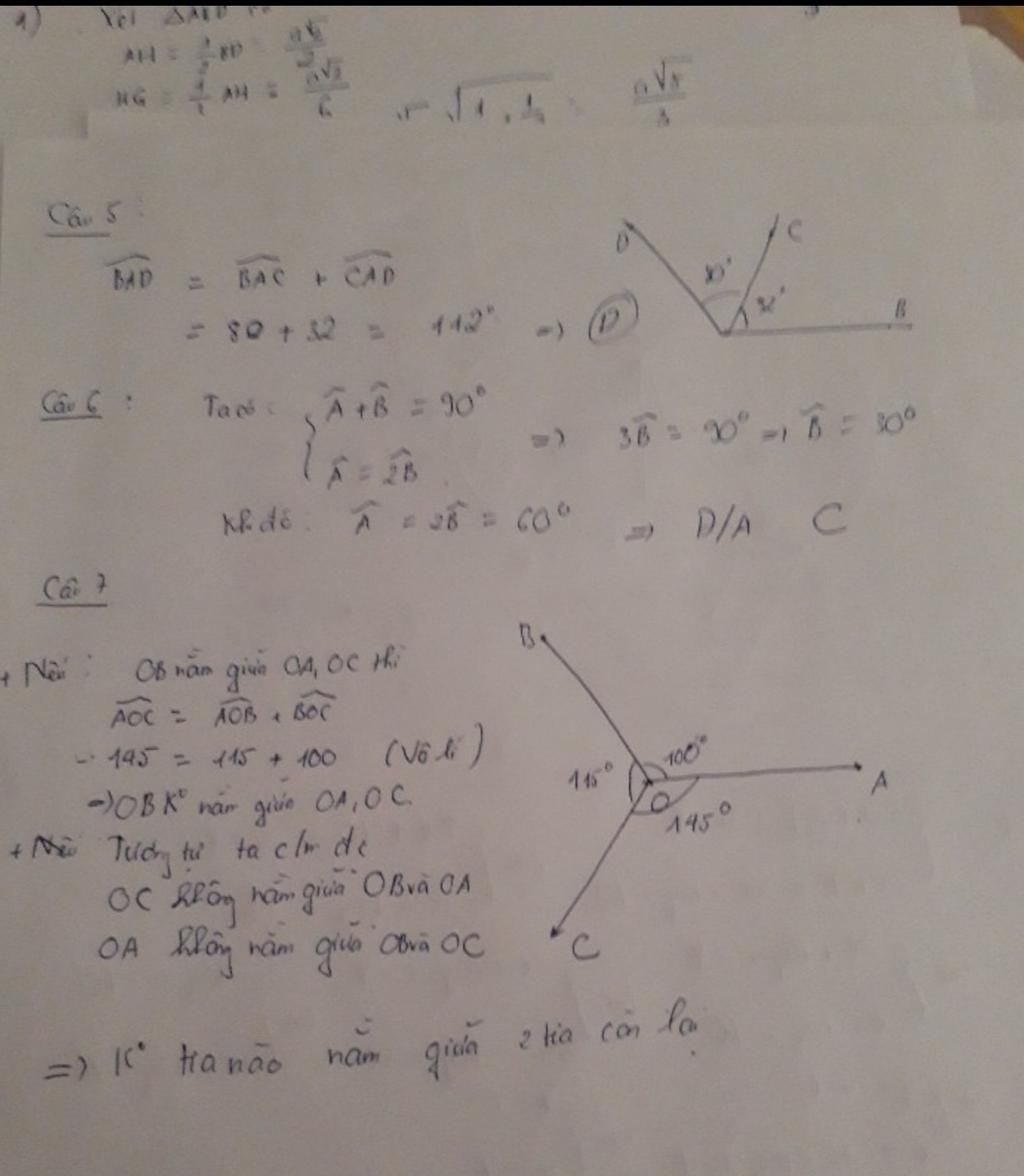 a)
AH = 1/2 BD = a√2/2
HG = 1/3 AH = a√2/6
Câu 5 :
BAD = BAC + CAD
= 80 + 32 = 112° => D
D C 80° 32° B
Câu 6 : Ta có : { Â + B̂ = 90°
 = 2B̂ => 3B̂ = 90° => B̂ = 30°
Khi đó :  = 2B̂ = 60° => D/A C
Câu 7
B 100° A 115° O 145° C
+ Nếu : OB nằm giữa OA, OC thì
AOC = AOB + BOC
145 = 115 + 100 (Vô lí)
=> OB K° nằm giữa OA, OC.
+ Tương tự ta c/m đc
OC không nằm giữa OB và OA
OA không nằm giữa OB và OC
=> K° tia nào nằm giữa 2 tia còn lại